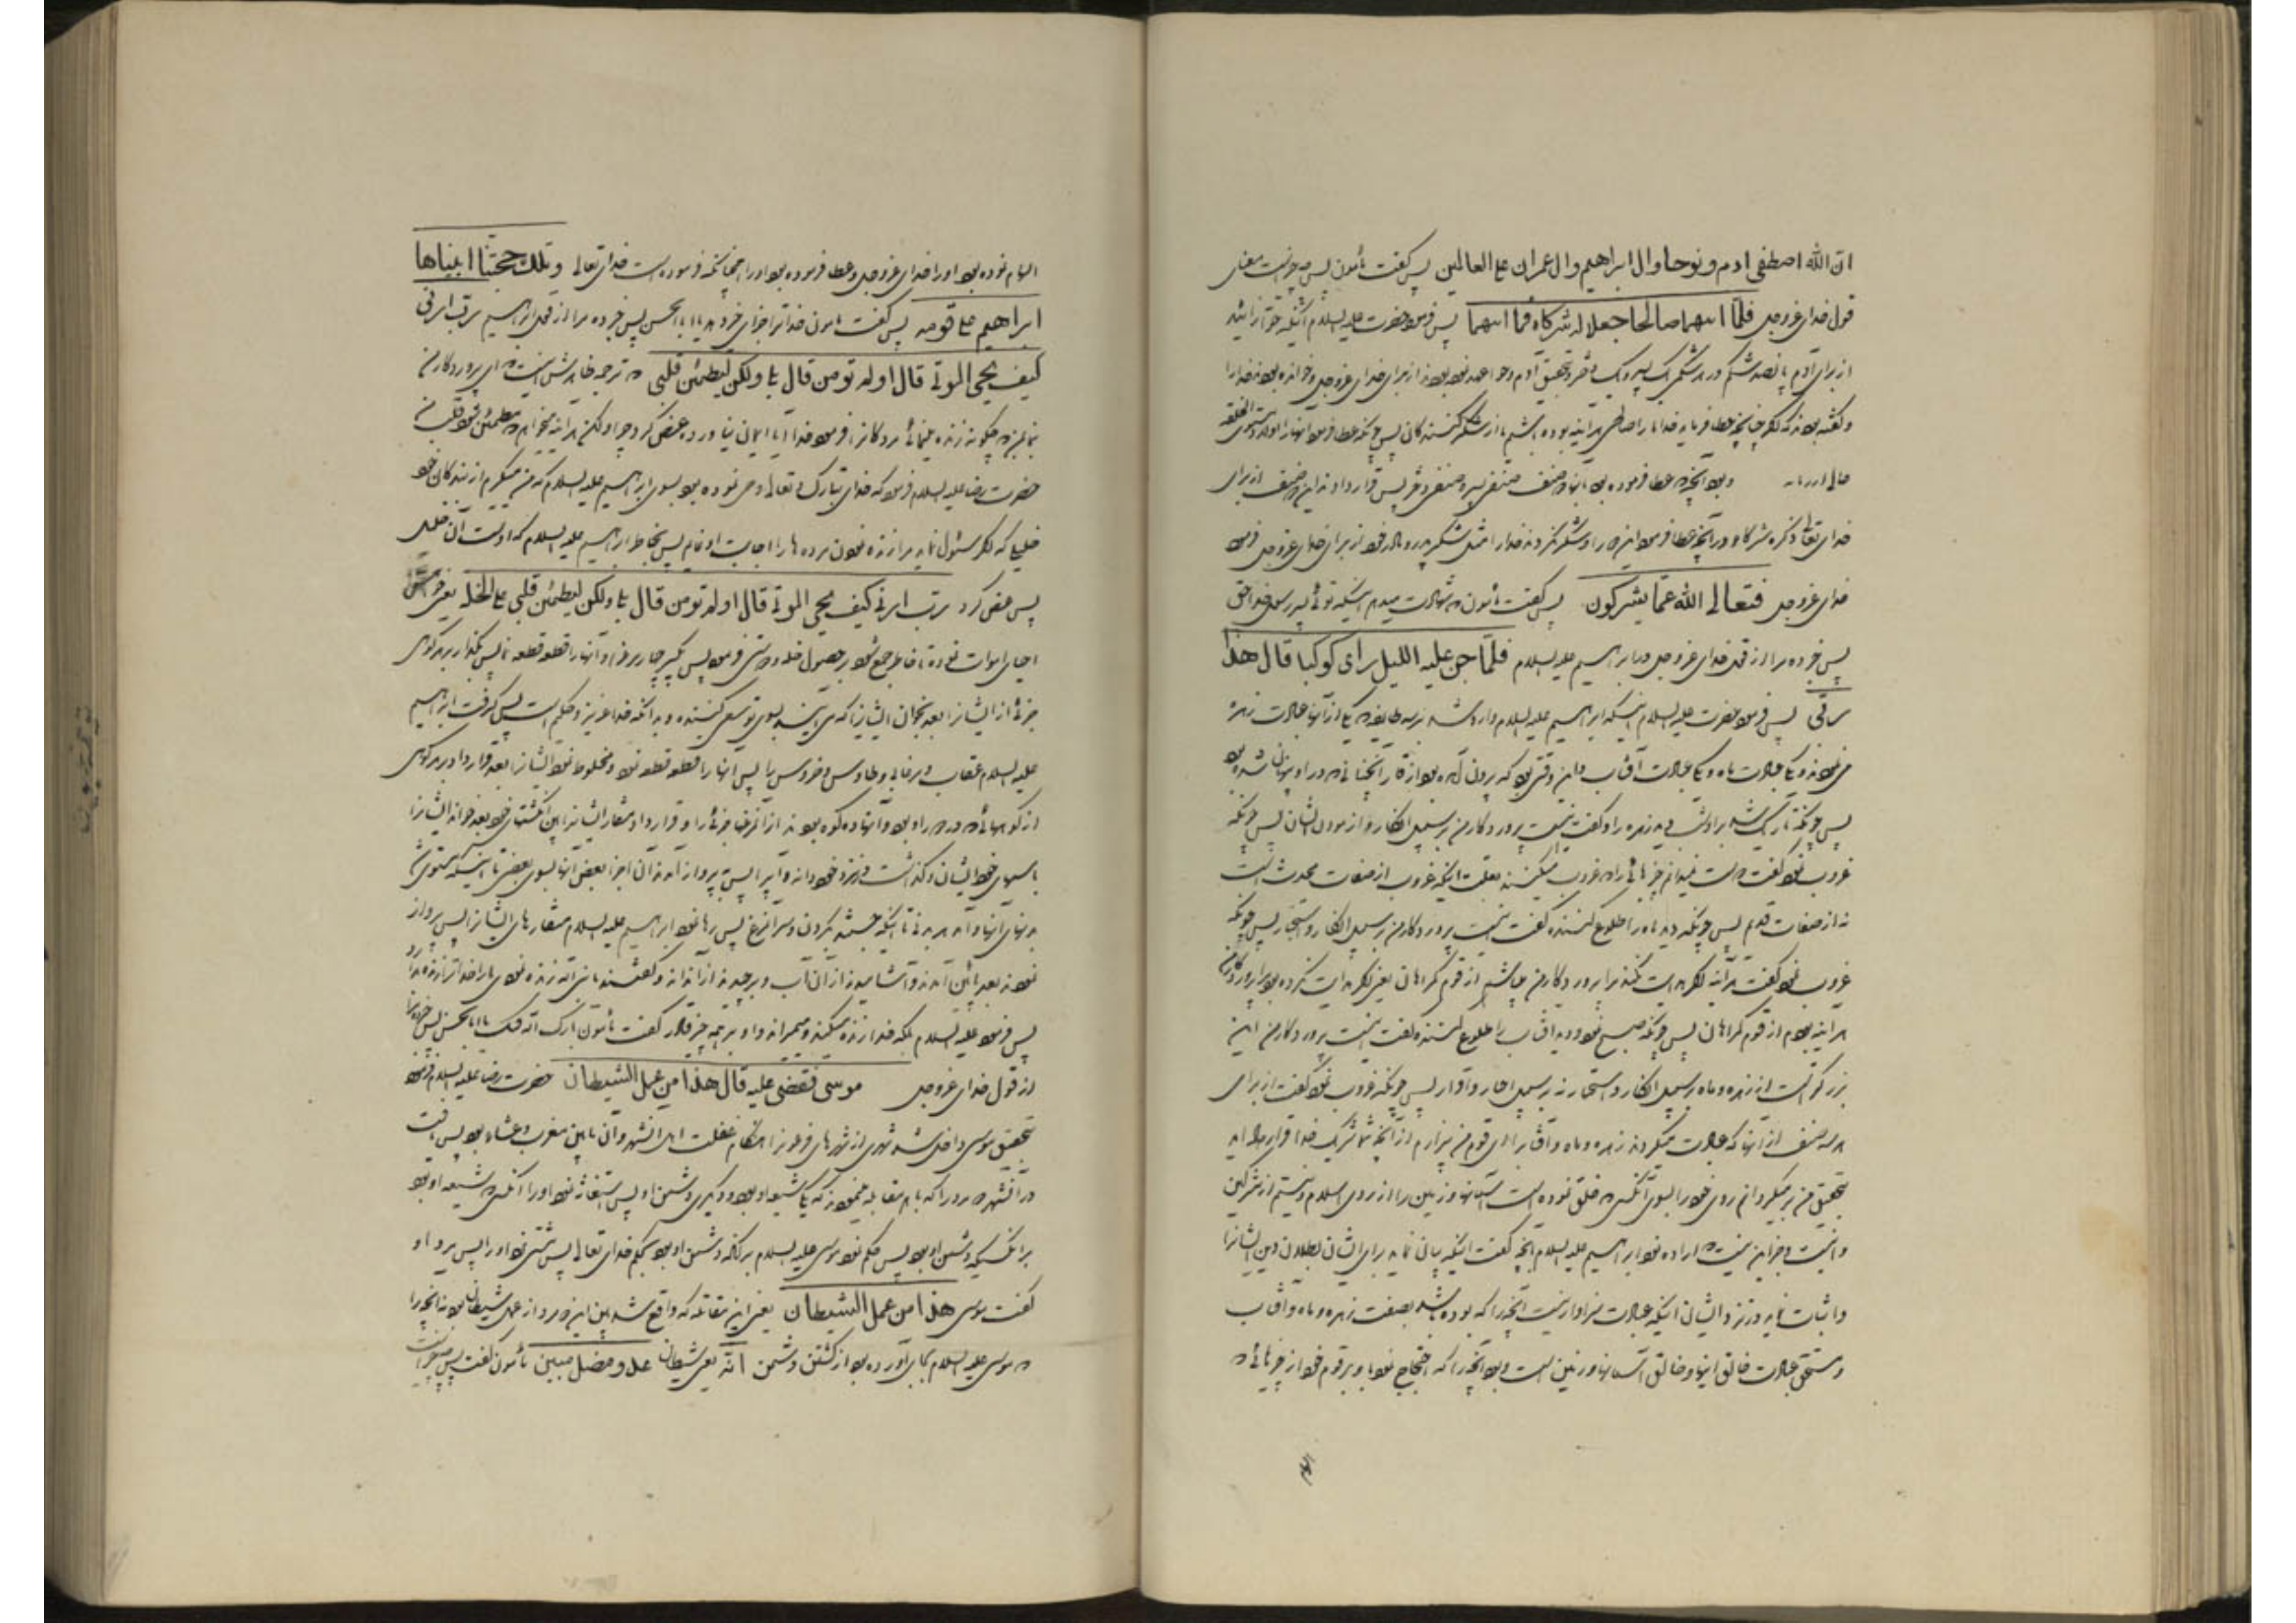 ان الله اصطفی ادم و نوحا وال ابراهیم وال عمران علی العالمین پس گفت مأمون پس چه چیز است معنی
قول خدای عزوجل فلمّا اتیهما صالحا جعلا له شرکاء فیما اتیهما پس فرمود حضرت علیه السلام اینکه حوا زائید
از برای آدم پانصد شکم در هر شکمی یک پسر و یک دختر و بتحقیق آدم و حوا عهد نموده بودند از برای خدای عزوجل و خوانده بودند خدا را
و گفته بودند که اگر چنانچه عطا فرماید خدا ما را صالحی هرآینه بوده باشیم ما از شکر کنندگان پس چونکه عطا فرمود آنها را اولاد مستوی الخلقه
و بود آنچه که عطا فرموده بود بآنها دو صنف صنفی پسر و صنفی دختر پس قرار دادند این دو صنف از برای
خدای تعالی ذکره شرکاء در آنچه عطا فرمود این دو را و شکر نکردند خدا را مثل شکر پدر و مادر خود از برای خدای عزوجل فرمود
خدای عزوجل فتعالی الله عمّا یشرکون پس گفت مأمون که شهادت میدهم اینکه توئی پسر رسول خدا حق
پس خبر ده مرا از قول خدای عزوجل در ابراهیم علیه السلام فلمّا جن علیه اللیل رای کوکبا قال هذا
ربی پس فرمود حضرت علیه السلام اینکه ابراهیم علیه السلام وارد شد بر سه طایفه که یکی از آنها عبادت زهره
می نمودند و یکی عبادت ماه و یکی عبادت آفتاب و این وقتی بود که بیرون آمده بود از غار آنچنانی که در او پنهان شده بود
پس چونکه تاریک شد بر او شب دید زهره را و گفت اینست پروردگار من بر سبیل انکار و آزمودن ایشان پس چونکه
غروب نمود گفت دوست نمیدارم چیزهائی را که غروب میکنند بعلت اینکه غروب از صفات محدث است
نه از صفات قدیم پس چونکه دید ماه را طلوع کننده گفت اینست پروردگار من بر سبیل انکار و استخبار پس چونکه
غروب نمود گفت هرآینه اگر هدایت نکند مرا پروردگار من میباشم از قوم گمراهان یعنی اگر هدایت نکرده بود مرا پروردگارم
هرآینه بودم از قوم گمراهان پس چونکه صبح نمود و دید آفتاب را طلوع کننده گفت اینست پروردگار من این
بزرگتر است از زهره و ماه بر سبیل انکار و استخبار نه بر سبیل اخبار و اقرار پس چونکه غروب نمود گفت از برای
هر سه صنف از آنها که عبادت میکردند زهره و ماه و آفتاب را ای قوم من بیزارم از آنچه شما شریک خدا قرار داده اید
بتحقیق من برمیگردانم روی خود را بسوی آنکسی که خلق نموده است آسمانها و زمین را از روی اسلام و نیستم از مشرکین
و اینست و جز این نیست که اراده نمود ابراهیم علیه السلام بآنچه گفت اینکه بیان نماید برای ایشان بطلان دین ایشانرا
و اثبات نماید در نزد ایشان اینکه عبادت سزاوار نیست آنچه را که بوده باشد بصفت زهره و ماه و آفتاب
و مستحق عبادت خالق اینها و خالق آسمانها و زمین است و بود آنچه را که احتجاج نمود با و بر قوم خود از چیزهائی که
الهام
الهام نموده بود او را خدای عزوجل و عطا فرموده بود او را همچنانکه فرموده است خدای تعالی و تلک حجتنا اتیناها
ابراهیم علی قومه پس گفت مأمون خدا ترا جزای خیر دهد یا ابا الحسن پس خبر ده مرا از قول ابراهیم رب ارنی
کیف یحیی الموتی قال اوله تومن قال بلی ولکن لیطمئن قلبی که ترجمه ظاهرش اینست که ای پروردگار من
بنما بمن که چگونه زنده مینمائی مردگانرا فرمود خدا آیا ایمان نیاورده عرض کرد چرا ولکن هرآینه میخواهم که مطمئن شود قلب من
حضرت رضا علیه السلام فرمود که خدای تبارک و تعالی وحی نموده بود بسوی ابراهیم علیه السلام که من میگیرم از بندگان خود
خلیلی که اگر سئوال نماید مرا زنده نمودن مرده ها را اجابت او نمایم پس بخاطر ابراهیم علیه السلام که اوست آن خلیل
پس عرض کرد رب ارنی کیف یحیی الموتی قال اوله تومن قال بلی ولکن لیطمئن قلبی علی الخله یعنی
احیای اموات نموده تا خاطر جمع شود بر حصول خلت و دوستی فرمود پس بگیر چهار مرغ را و آنها را قطعه قطعه نما پس بگذار بر هر کوهی
جزئی از ایشانرا بعد بخوان ایشانرا که می آیند بسوی تو سعی کننده و بدانکه خدا عزیز و حکیم است پس گرفت ابراهیم
علیه السلام عقاب و مرغابی و طاوس و خروس را پس آنها را قطعه قطعه نمود و مخلوط نمود ایشانرا بعد قرار داد بر هر کوهی
از کوههائی که در دور او بود و آنها ده کوه بودند از آن مرغها جزئی را و قرار داد منقار ایشانرا بین انگشتهای خود بعد خواند ایشانرا
باسمهای خود ایشان و گذاشت در نزد خود دانه و آب را پس پرواز آمدند آن اجزا بعضی آنها بسوی بعضی تا اینکه مستوی شد
بدنهای آنها و آمد هر بدنی تا اینکه چسپید بگردن و سر آنمرغ پس رها نمود ابراهیم علیه السلام منقارهای ایشانرا پس پرواز
نمودند بعد پائین آمدند و آشامیدند از آن آب و برچیدند از آندانه و گفتند یا نبی الله زنده نمودی ما را خدا ترا زنده بدارد
پس فرمود علیه السلام بلکه خدا زنده میکند و میمیراند و او بر همه چیز قادر گفت مأمون بارک الله فیک یا ابا الحسن پس خبر ده مرا
از قول خدای عزوجل موسی فقضی علیه قال هذا من عمل الشیطان حضرت رضا علیه السلام فرمود
بتحقیق موسی داخل شد شهری از شهرهای فرعون را هنگام غفلت اهل آنشهر و آن مابین مغرب و عشاء بود پس یافت
در آنشهر دو مرد را که با هم مقابله مینمودند که یکی شیعه او بود و دیگری دشمن او پس استغاثه نمود او را آنکس که شیعه او بود
بر آنکسیکه دشمن او بود پس حکم نمود موسی علیه السلام بر آنکه دشمن او بود بحکم خدای تعالی پس مشتی زد او را پس مرد او
گفت موسی هذا من عمل الشیطان یعنی این مقاتله که واقع شد بین این دو مرد از عمل شیطان بود نه آنچه را
که موسی علیه السلام بجای آورده بود از کشتن دشمن انّه یعنی شیطان عدو مضل مبین مأمون گفت پس چه چیز است